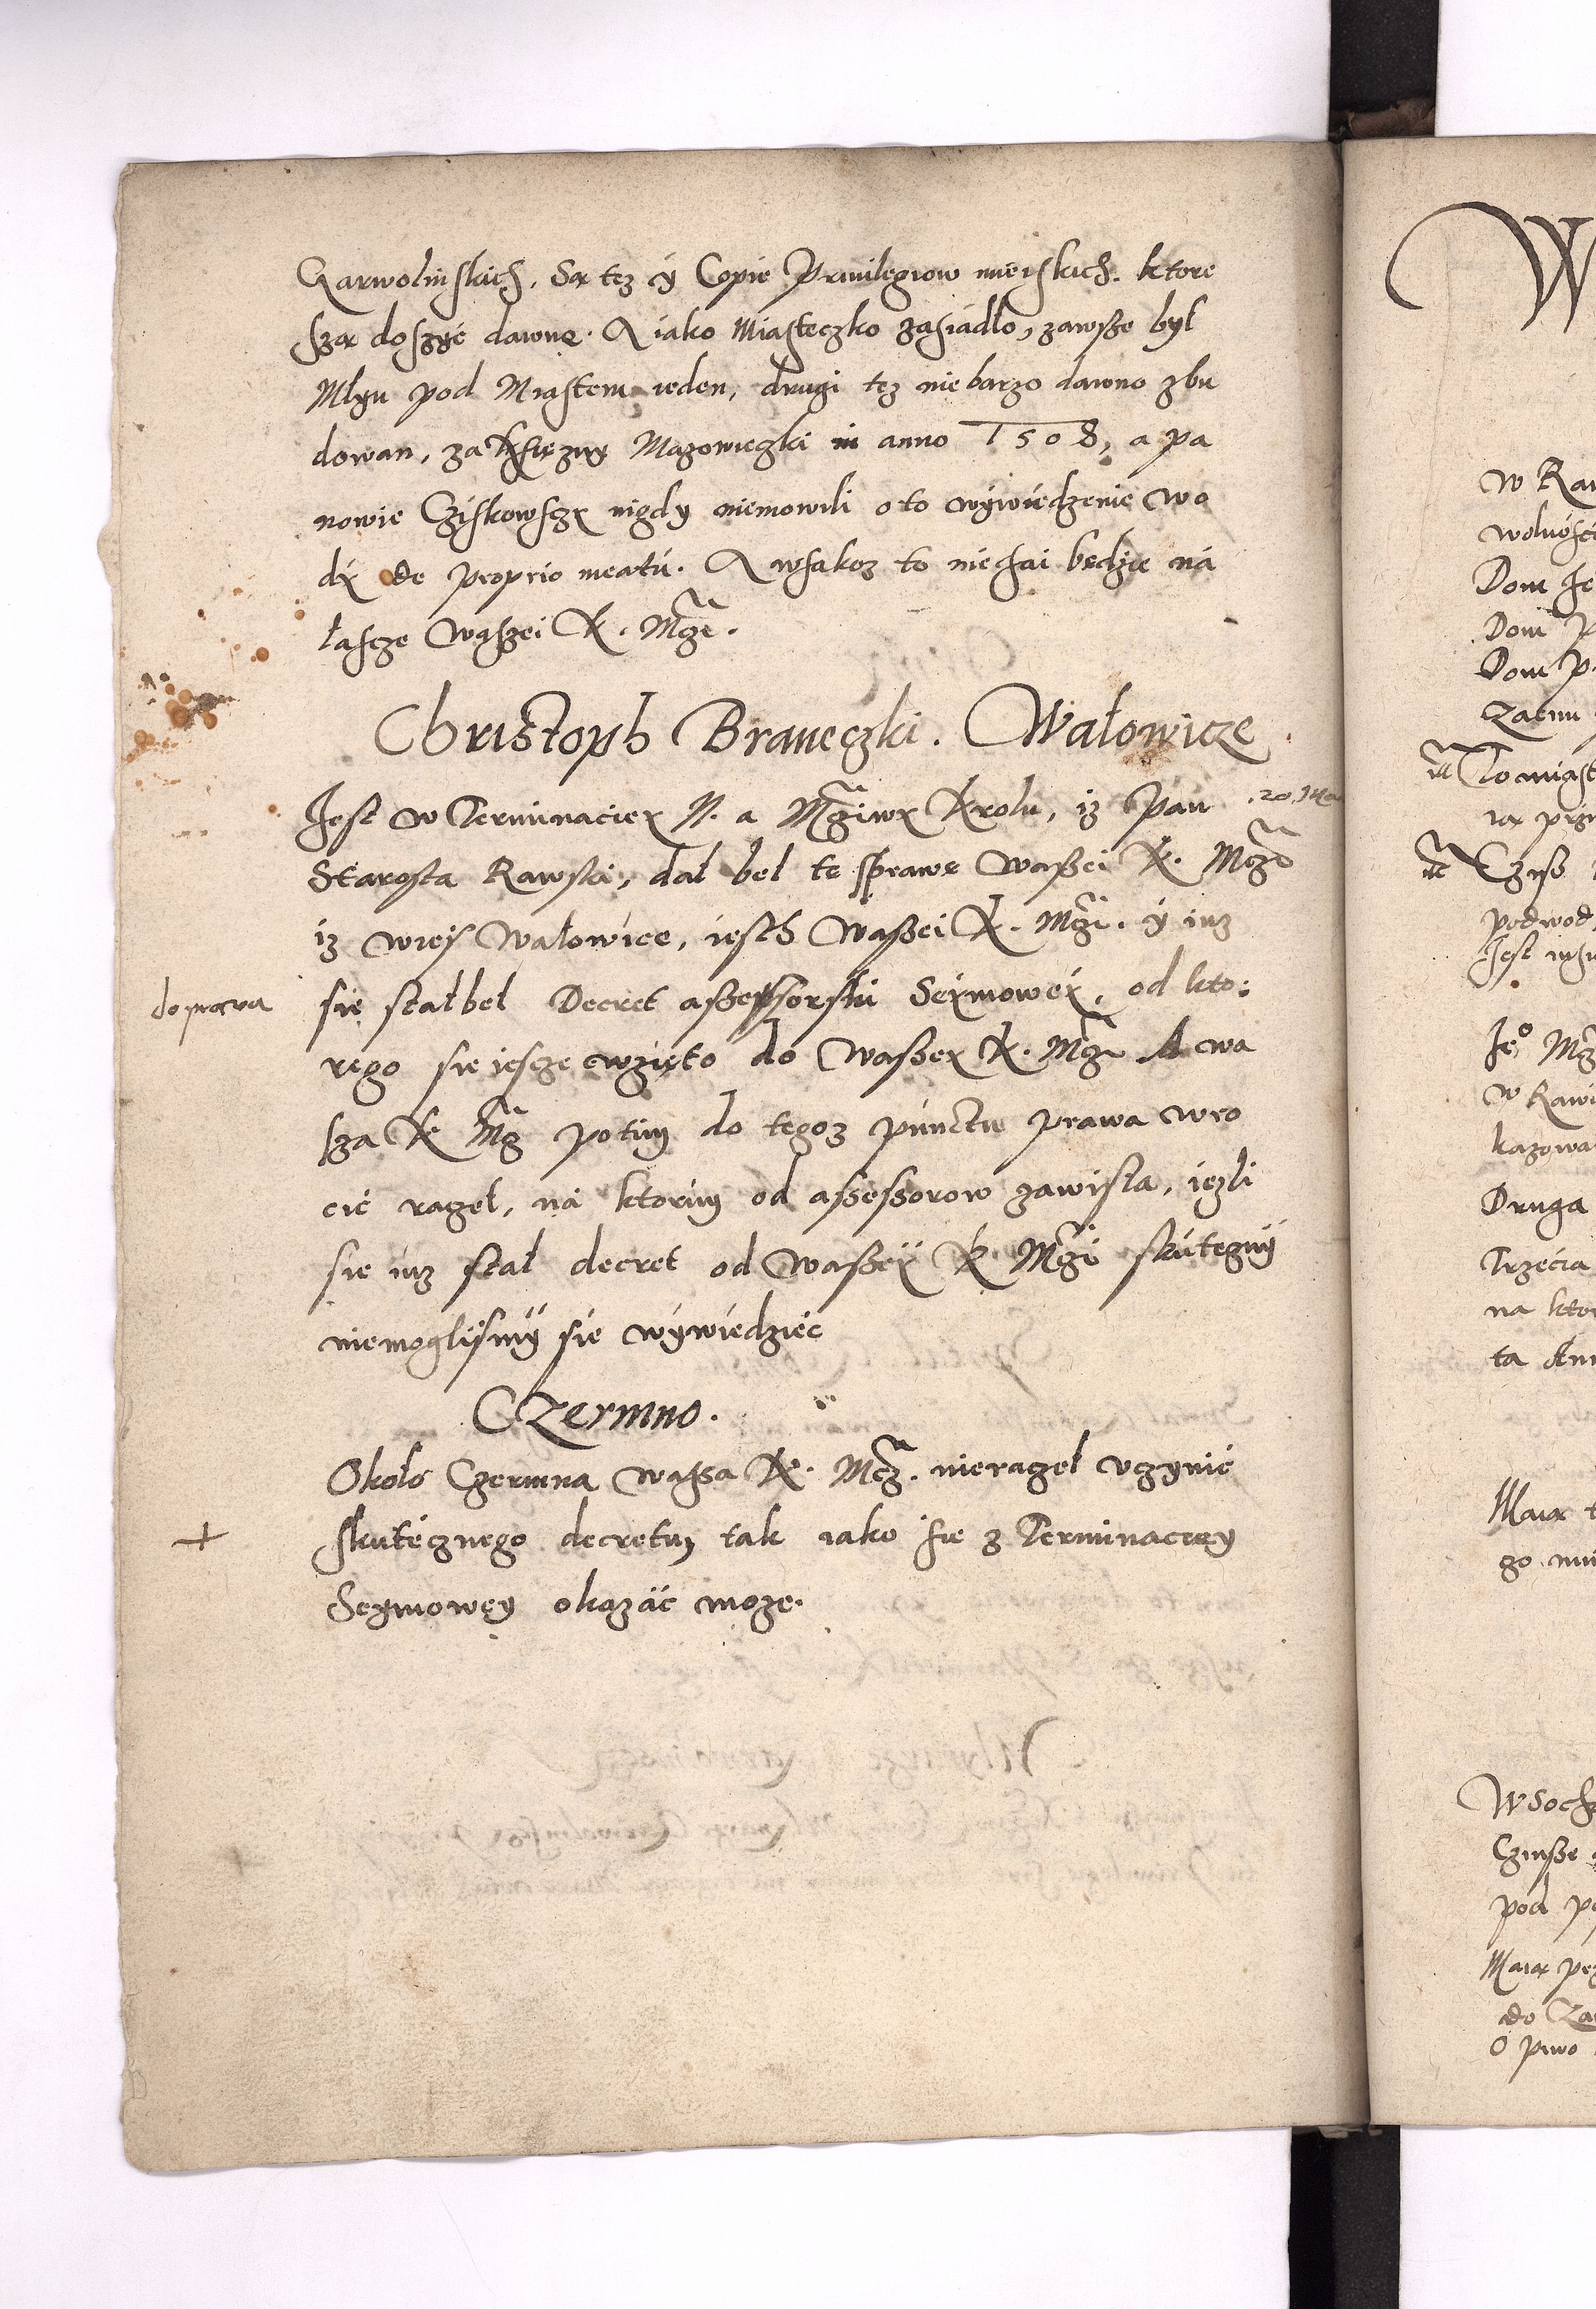 Garwolinskich. Są też ÿ Copie Priuilegiow mieiskich. ktore
sza doszyć dawne. A iako Miasteczko zasiadło, zawsze był
Młyn pod Miastem ieden, drugi też nie barzo dawno zbu
dowan, za Księżny Mazowiezki in anno 1508, a pa
nowie nigdy niemowili o to wÿwiedzenie wo
dy de proprio meatu. A wsakoz to niechai bedzie na
łascze waszei K. Mcze.
Christoph Braneczki. Wałowicze
Jest w Terminaciey N. a Mciwy Krolu, iz Pan
Starosta Rawski, dał beł te sprawe waßei K. Mcze
iz wieś Wałowice, iesth Waßei K. Mczi. ÿ iuz
do prawa
sie stał beł Decret aßeßorski Seimowey, od kto:
rego sie iescze wzięto do Waßey K. Mczi A wa
sza K Mcz potim do tegoz punctu prawa wro
cić raczeł, na ktorim od aßeßorow zawisła, iezli
sie iuz stał decret od Waßeÿ K. Mczi skutecznÿ
niemogliśmÿ sie wÿwiedziec
Czermno.
Około Czermna wassa K. Mcz. nieraczeł vczynić
+
skutecznego decretu, tak iako sie z Terminacyey
Seymowey okazać moze.
W
W Raw
Dom
Dom
Dom
To miast
Czynß
podwod
Jest
W Rawi
kazowa
Druga
Trzecia
na ktor
ta
Maia
go
W Soch
Czinße
pod
Maia
do
o piwo